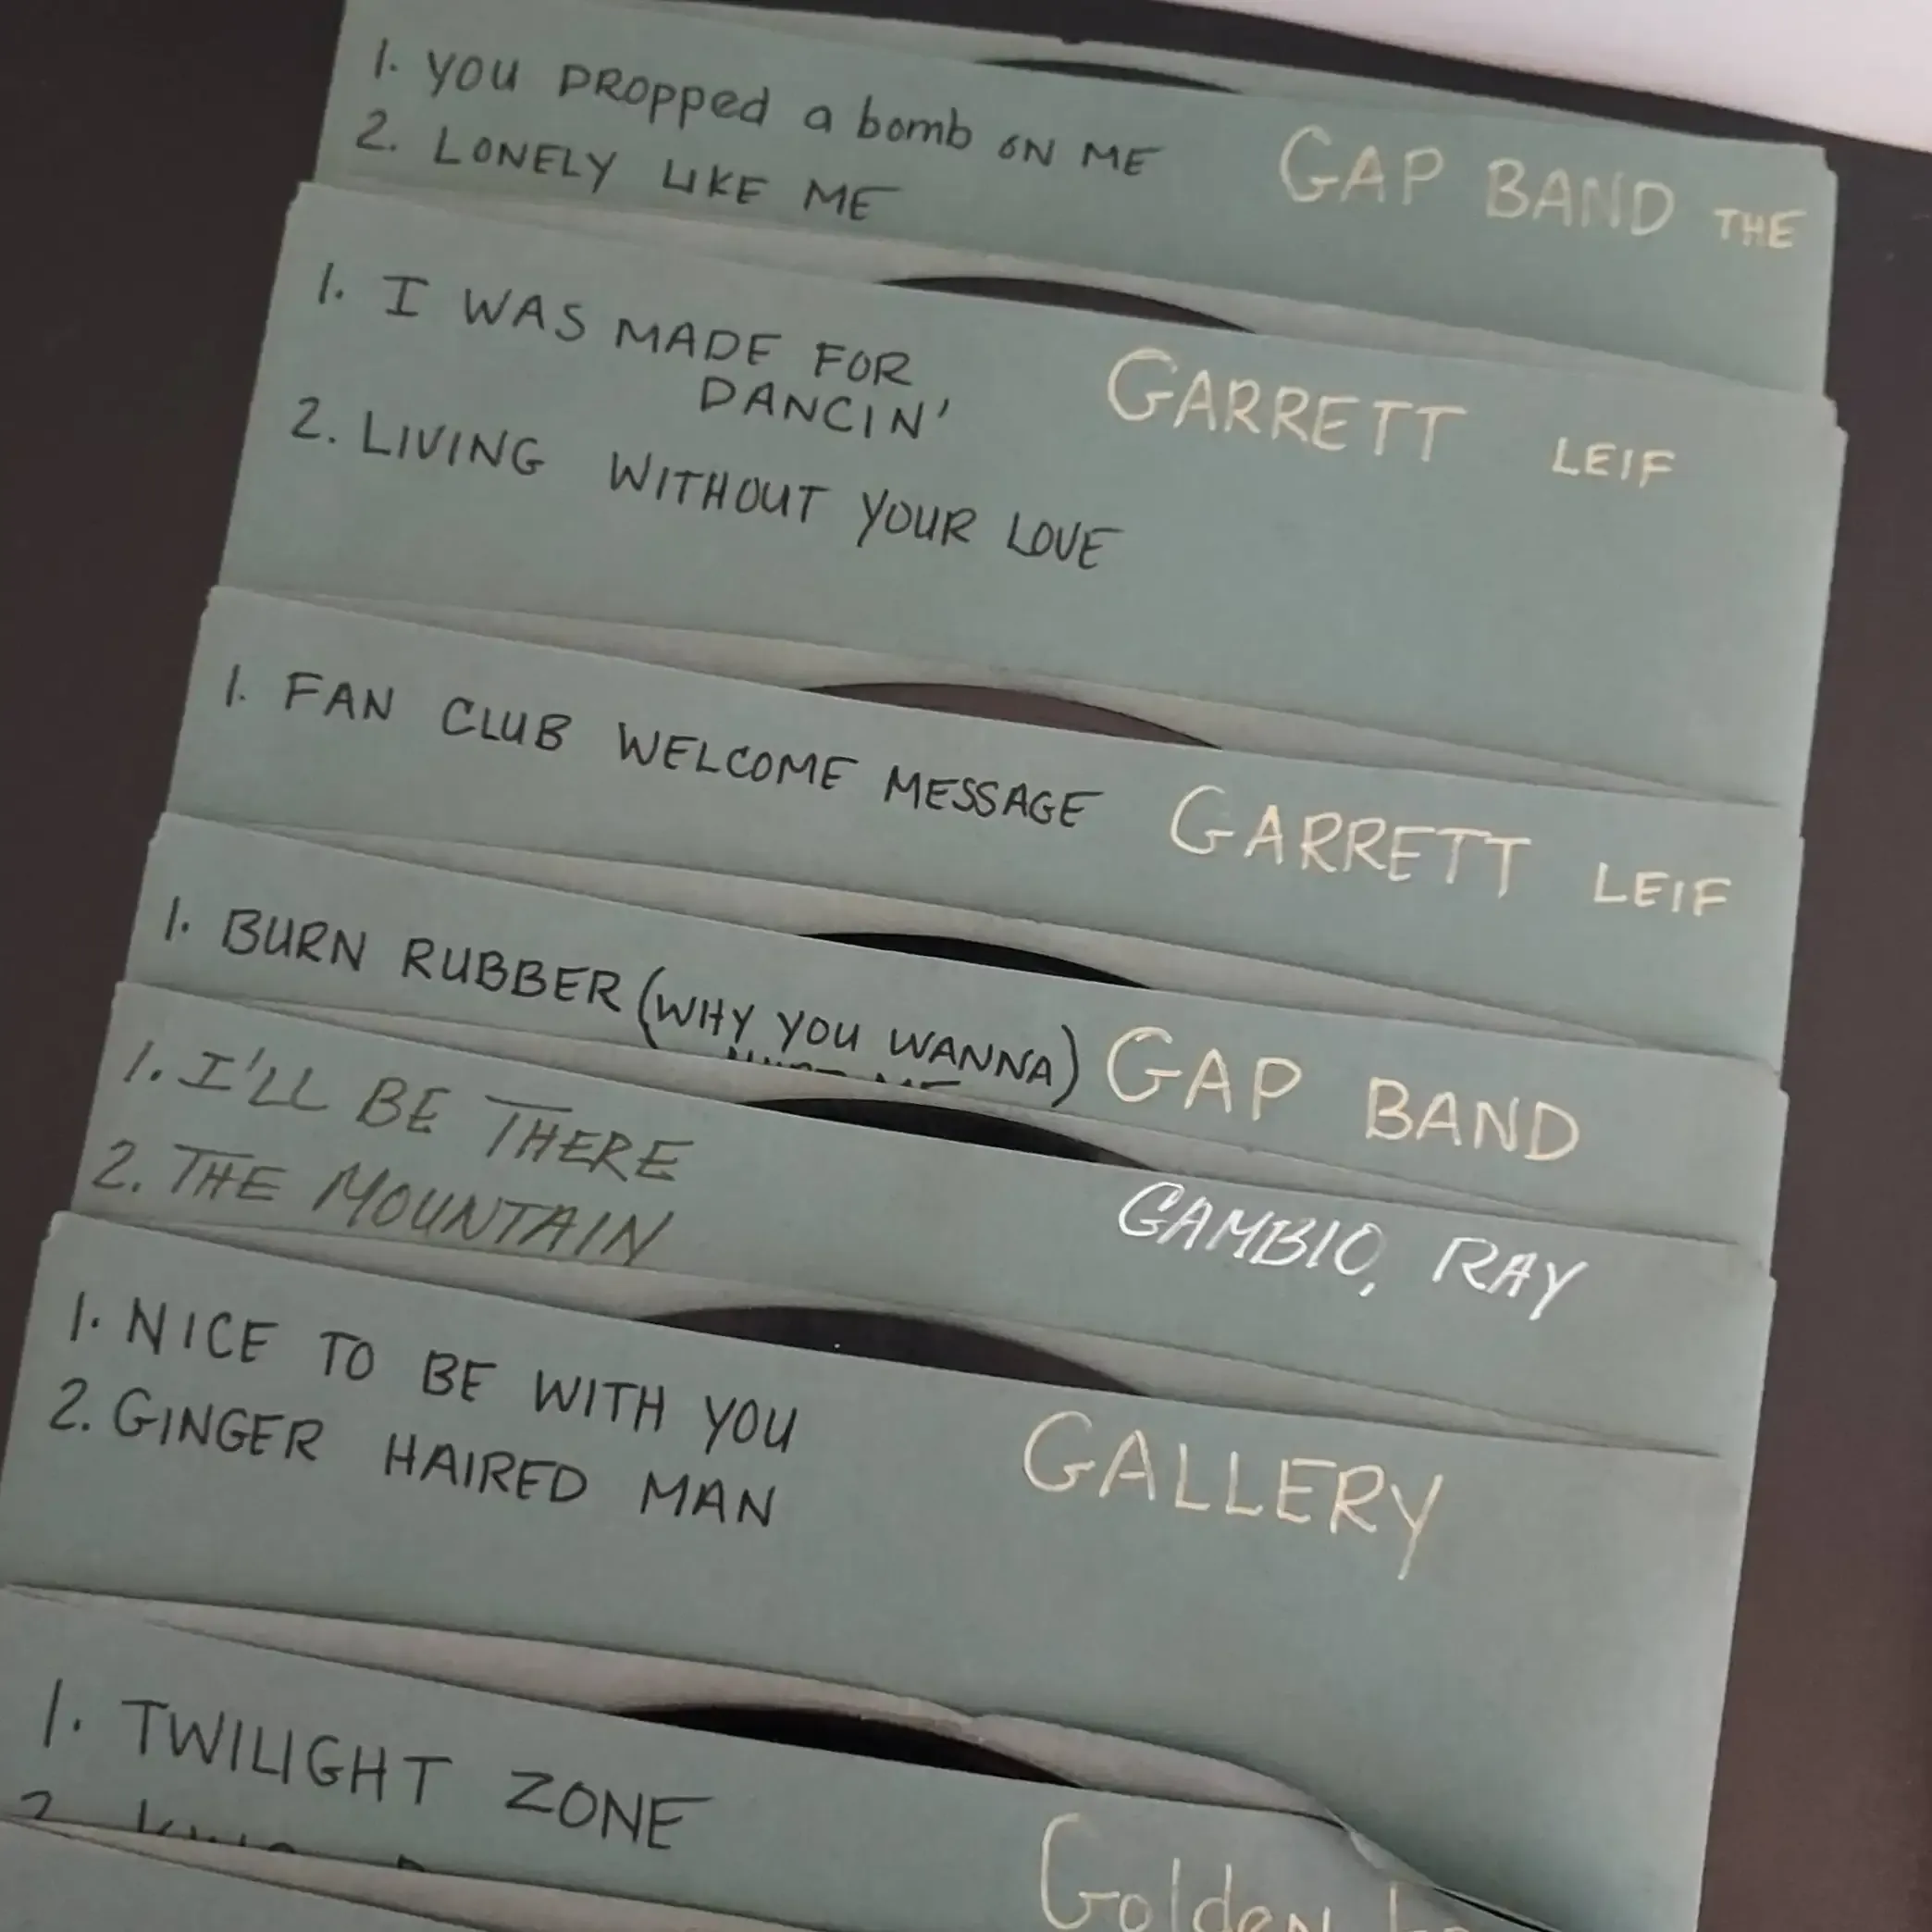 1. YOU DROPPED a bomb ON ME
2. LONELY LIKE ME
GAP BAND THE
1. I WAS MADE FOR
DANCIN'
2. LIVING WITHOUT YOUR LOVE
GARRETT LEIF
1. FAN CLUB WELCOME MESSAGE
GARRETT LEIF
1. BURN RUBBER (WHY YOU WANNA)
GAP BAND
1. I'LL BE THERE
2. THE MOUNTAIN
GAMBIO, RAY
1. NICE TO BE WITH YOU
2. GINGER HAIRED MAN
GALLERY
1. TWILIGHT ZONE
2.
Golden